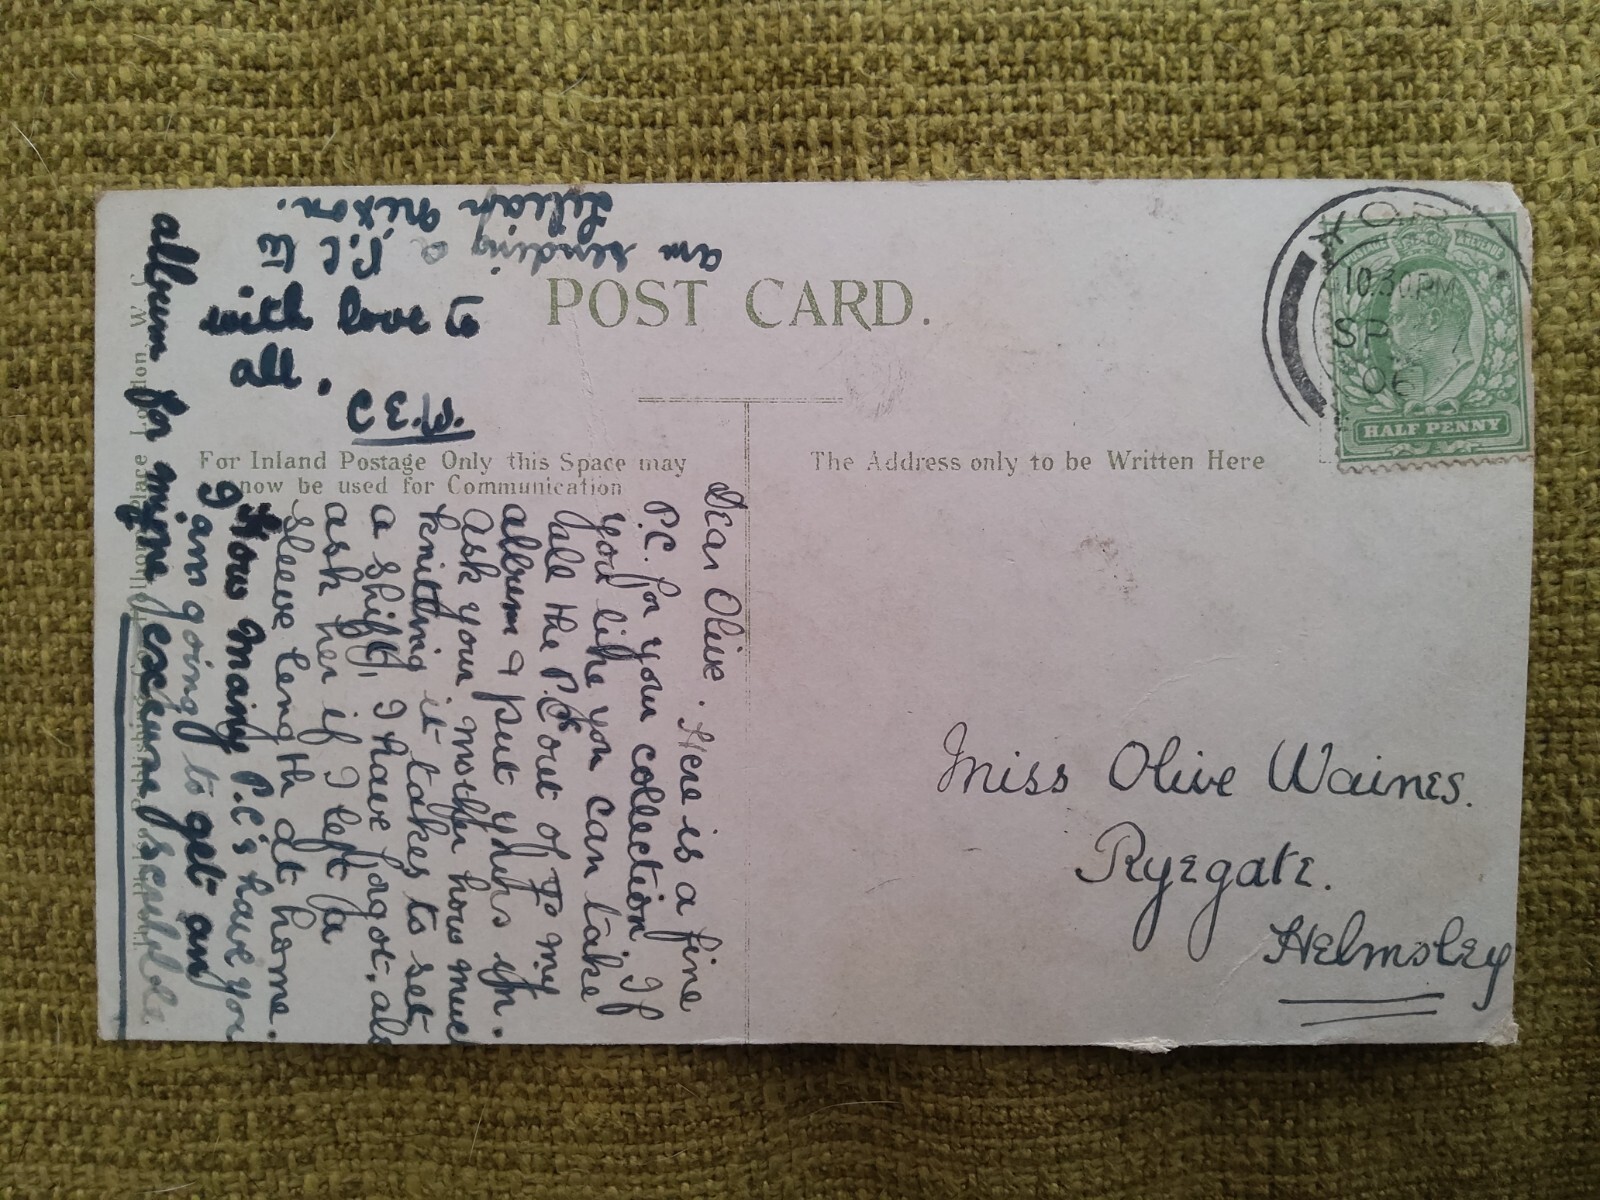 POST CARD.
For Inland Postage Only this Space may
now be used for Communication
The Address only to be Written Here
HALF PENNY
YORK
10.30PM
SP
06
Miss Olive Waines.
Ryegate.
Helmsley
Dear Olive. Here is a fine
P.C. for your collection, If
you like you can take
all the P.C out of my
album & put yours in.
ask your mother how muc
knitting it takes to set
a shift, I have forgot, als
ask her if I left a
sleeve length at home.
How many P.C.'s have you
I am going to get an
album for mine excuse scribble
with love to
all.
am sending a P.C to
Lilian Nixon.